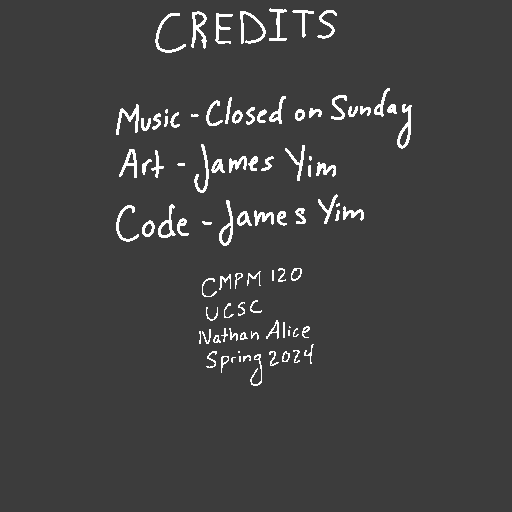 CREDITS
Music - Closed on Sunday
Art - James Yim
Code - James Yim
CMPM 120
UCSC
Nathan Alice
Spring 2024